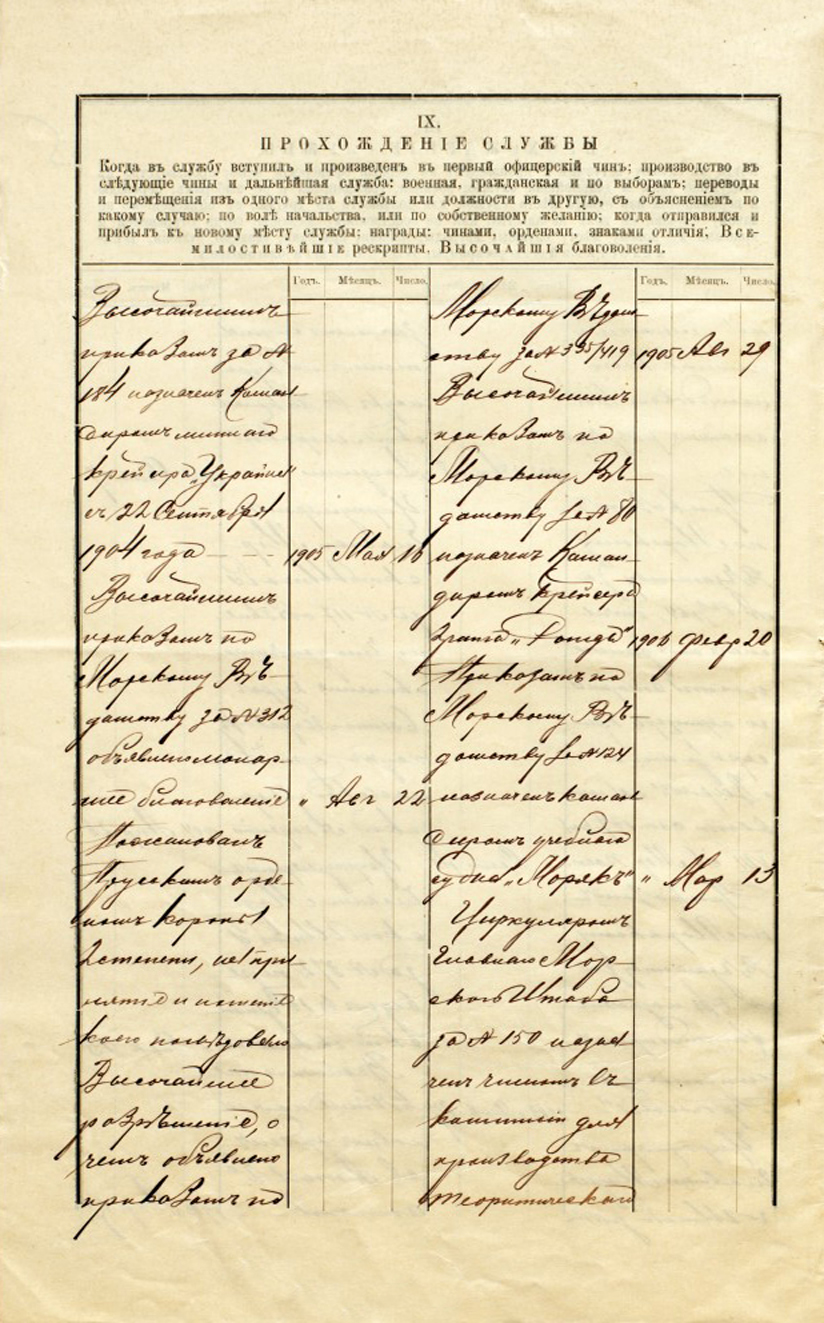 IX.
ПРОХОЖДЕНІЕ СЛУЖБЫ
Когда въ службу вступилъ и произведенъ въ первый офицерскій чинъ; производство въ
слѣдующіе чины и дальнѣйшая служба: военная, гражданская и по выборамъ; переводы
и перемѣщенія изъ одного мѣста службы или должности въ другую, съ объясненіемъ по
какому случаю; по волѣ начальства, или по собственному желанію; когда отправился и
прибылъ къ новому мѣсту службы; награды: чинами, орденами, знаками отличія; Все-
милостивѣйшіе рескрипты, Высочайшія благоволенія.
Годъ. Мѣсяцъ. Число.
Высочайшимъ
приказомъ за №
184 назначен Коман
диромъ миннаго
крейсера „Украйна“
съ 22 Сентября
1904 года 1905 Мая 16
Высочайшимъ
приказомъ по
Морскому Вѣ-
домству за № 312
объявлено монар-
шее благоволеніе " Авг 22
Пожалованъ
Прусскимъ орде-
номъ короны
2 степени, на при
нятіе и ношеніе
коего послѣдовало
Высочайшее
разрѣшеніе, о
чемъ объявлено
приказомъ по
Годъ. Мѣсяцъ. Число.
Морскому Вѣдом
ству за № 395/419 1905 Авг 29
Высочайшимъ
приказомъ по
Морскому Вѣ-
домству за № 80
назначенъ Коман
диромъ крейсера
2 ранга 1906 Февр 20
Приказомъ по
Морскому Вѣ-
домству за № 124
назначенъ коман
диромъ учебнаго
судна „Морякъ“ " Мар 13
Циркуляромъ
Главнаго Мор
ского Штаба
за № 150 назна
чен членомъ въ
комиссіи для
производства
теоритическаго